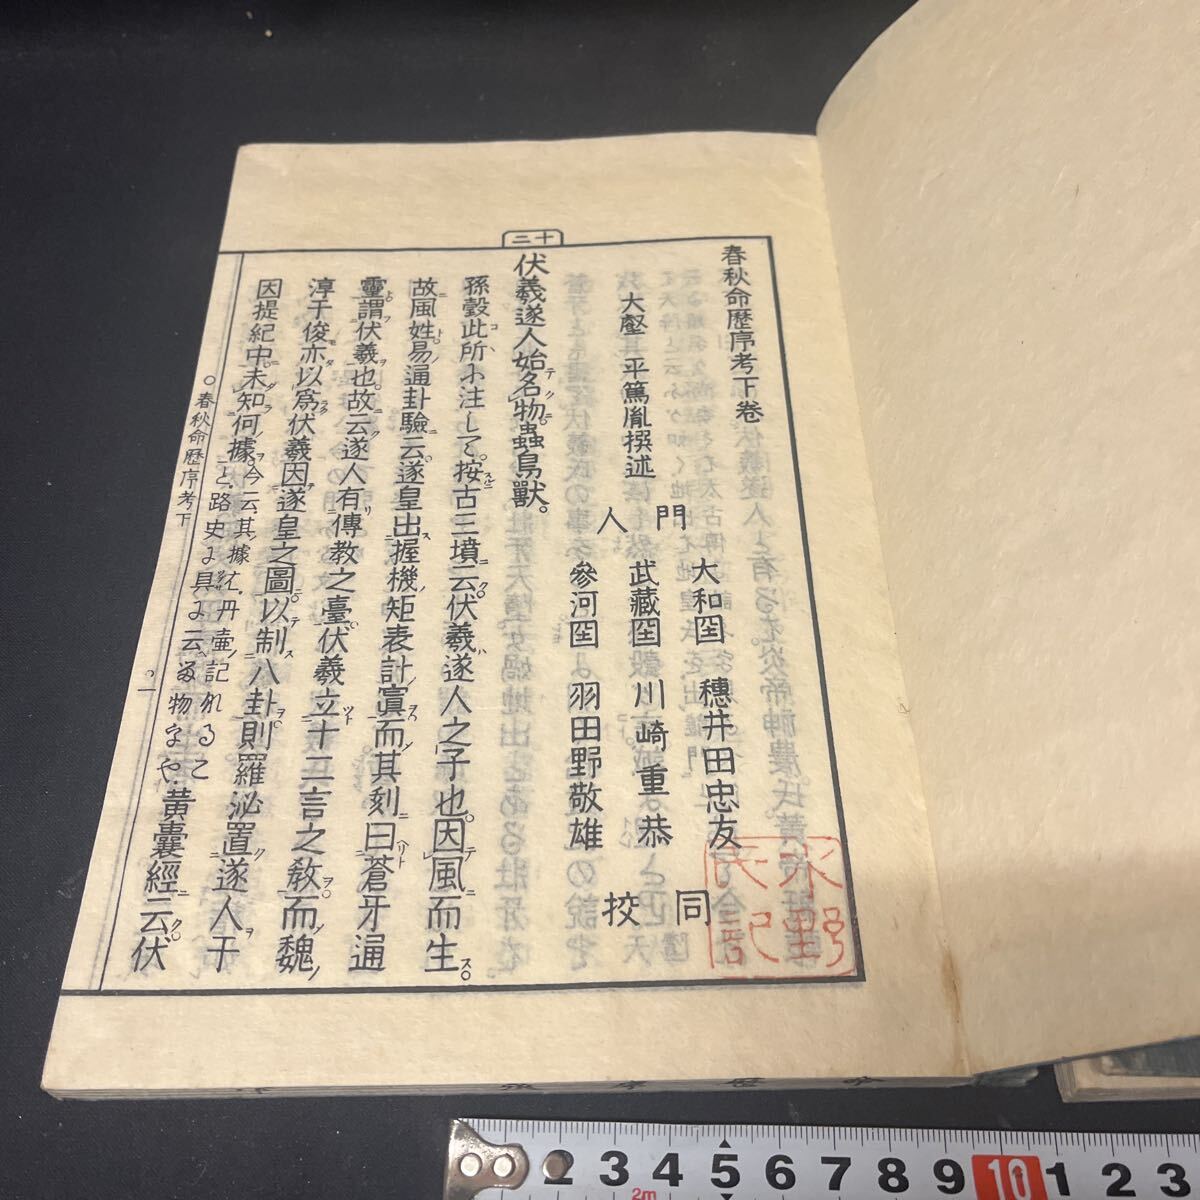 春秋命歴序考下卷
大壑 平篤胤撰述
門人
大和国 穗井田忠友
武藏国 川崎重恭
參河国 羽田野敬雄
同校
十二
伏羲遂人始名物蟲鳥獸。
孫瑴此所に注して。按古三墳云。伏羲遂人之子也。因風而生。
故風姓。易通卦驗云。遂皇出握機矩表計寘而其刻曰蒼牙通
靈謂伏羲也。故云遂人有傳教之臺。伏羲立十二言之教。而魏
淳于俊亦以爲伏羲因遂皇之圖。以制八卦則羅泌置遂人于
因提紀中。未知何據。今云、其據は、丹壷記なること、路史に具に云る物をや、黄嚢經云。伏
○春秋命歴序考下
○一
水野
氏記
2 3 4 5 6 7 8 9 10 1 2 3
2m